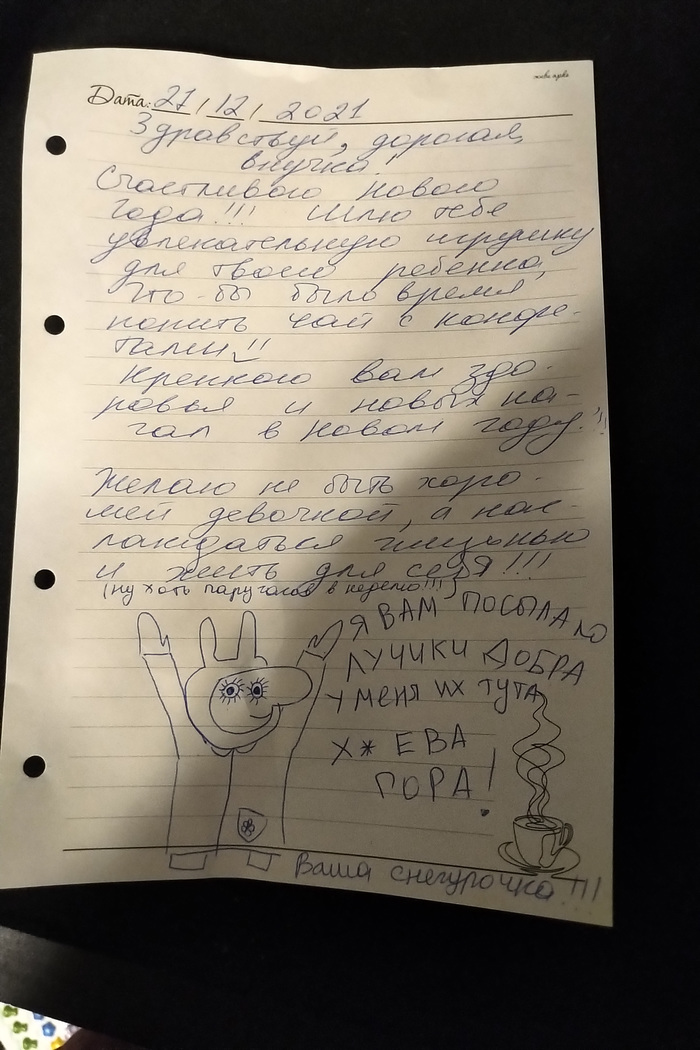 Дата: 27 / 12 / 2021
Здравствуй, дорогая
внучка!
Счастливого Нового
года!!! Шлю тебе
увлекательную игрушку
для твоего ребенка,
что-бы было время
попить чай с конфе-
тами!!
Крепкого вам здо-
ровья и новых на-
чал в Новом году!!!
Желаю не быть хоро-
шей девочкой, а нас-
лаждаться жизнью
и жить для себя!!!
(ну хоть пару часов в неделю!!!)
Я ВАМ ПОСЫЛАЮ
ЛУЧИКИ ДОБРА
У МЕНЯ ИХ ТУТА
Х* ЕВА
ГОРА!
Ваша снегурочка!!!